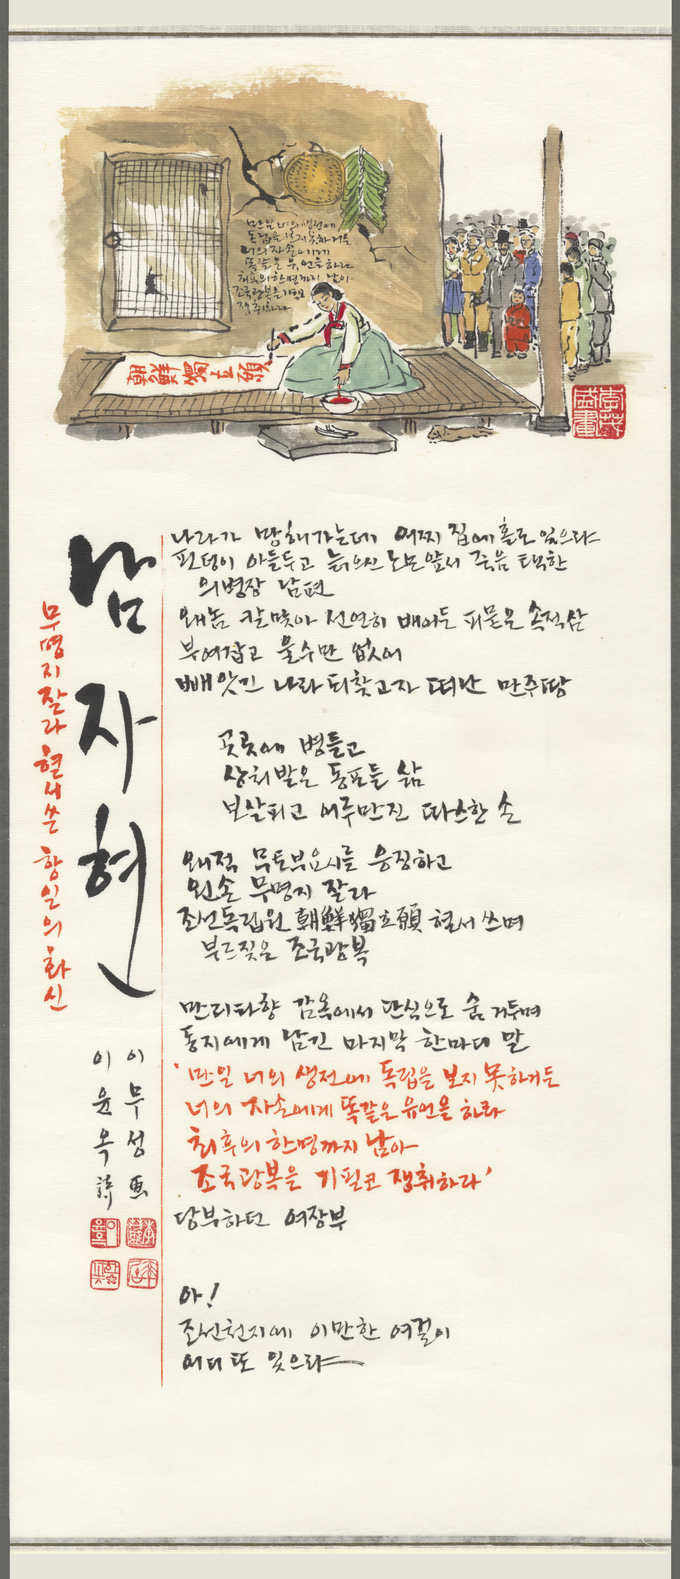 만일 너의 생전에
독립을 보지 못하거든
너의 자손에게
똑같은 유언을 하라
최후의 한명까지 남아
조국광복을 기필코
쟁취하라
朝鮮獨立願
李茂盛畫
남자현
무명지 잘라 혈서 쓴 항일의 화신
이무성 画
이윤옥 詩
나라가 망해가는데 어찌 집에 홀로 있으랴
핏덩이 아들두고 늙으신 노모 앞서 죽음 택한
의병장 남편
왜놈 칼 맞아 선연히 배어든 피묻은 속적삼
부여잡고 울수만 없어
빼앗긴 나라 되찾고자 떠난 만주땅
곳곳에 병들고
상처받은 동포들 삶
보살피고 어루만진 따스한 손
왜적 무토부요시를 응징하고
왼손 무명지 잘라
조선독립원 朝鮮獨立願 혈서 쓰며
부르짖은 조국광복
만리타향 감옥에서 단식으로 숨 거두며
동지에게 남긴 마지막 한마디 말
'만일 너의 생전에 독립을 보지 못하거든
너의 자손에게 똑같은 유언을 하라
최후의 한명까지 남아
조국광복을 기필코 쟁취하라'
당부하던 여장부
아!
조선천지에 이만한 여걸이
어디 또 있으랴